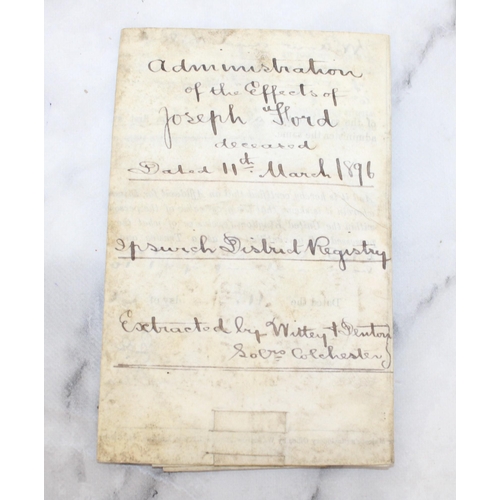 Administration
of the Effects of
Joseph Ford
deceased
Dated 11th March 1896
Ipswich District Registry
Extracted by Wittey & Denton
Solrs Colchester